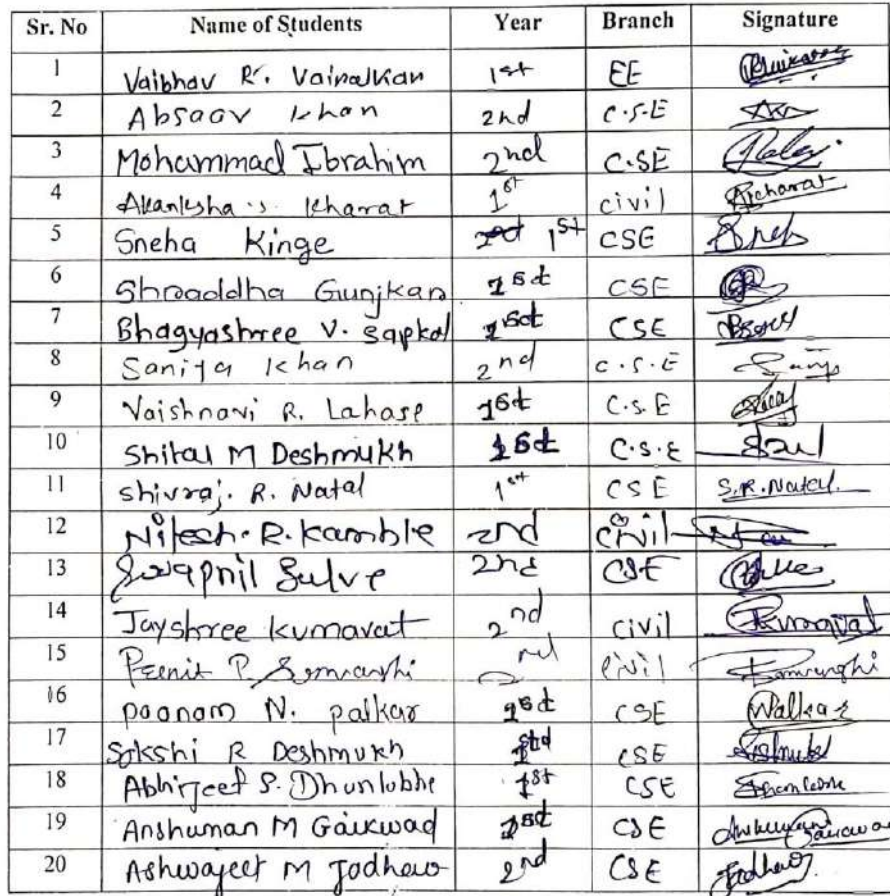 Sr. No Name of Students Year Branch Signature
1 Vaibhav R. Vairalkar 1st EE
2 Absaar Khan 2nd C.S.E
3 Mohammad Ibrahim 2nd C.SE
4 Akanksha S. Kharat 1st civil
5 Sneha Kinge 1st CSE
6 Shraddha Gunjkar 1st CSE
7 Bhagyashree V. Sapkal 1st CSE
8 Saniya Khan 2nd C.S.E
9 Vaishnavi R. Lahase 1st C.S.E
10 Shital M Deshmukh 1st C.S.E
11 Shivraj. R. Natal 1st CSE S.R.Natal
12 Nilesh. R. Kamble 2nd Civil
13 Swapnil Sulve 2nd CSE
14 Jayshree Kumavat 2nd Civil Kumavat
15 P. 2nd Civil
16 poonam N. palkar 1st CSE
17 Sakshi R Deshmukh CSE
18 Abhijeet S. 1st CSE
19 Anshuman M Gaikwad 1st CSE
20 Ashwajeet M Jadhav 2nd CSE Jadhav